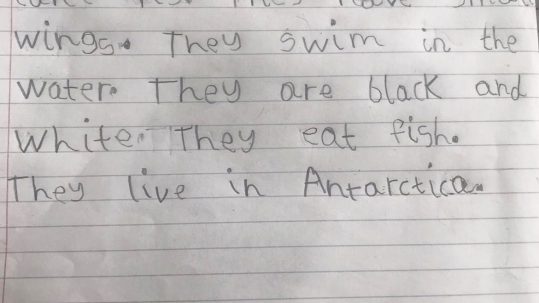 wings. They swim in the
water. They are black and
white. They eat fish.
They live in Antarctica.